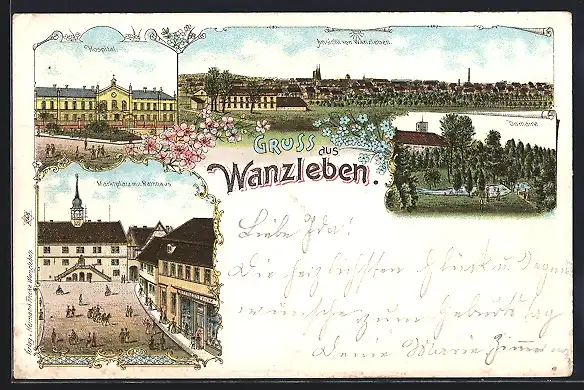 Hospital.
Ansicht von Wanzleben.
Domaine
GRUSS aus
Wanzleben.
Marktplatz mit Rathhaus
Liebe Ida!
Die herzlichsten Glück u. Segens
wünsche zum Geburtstag
Deine Marie Zimm